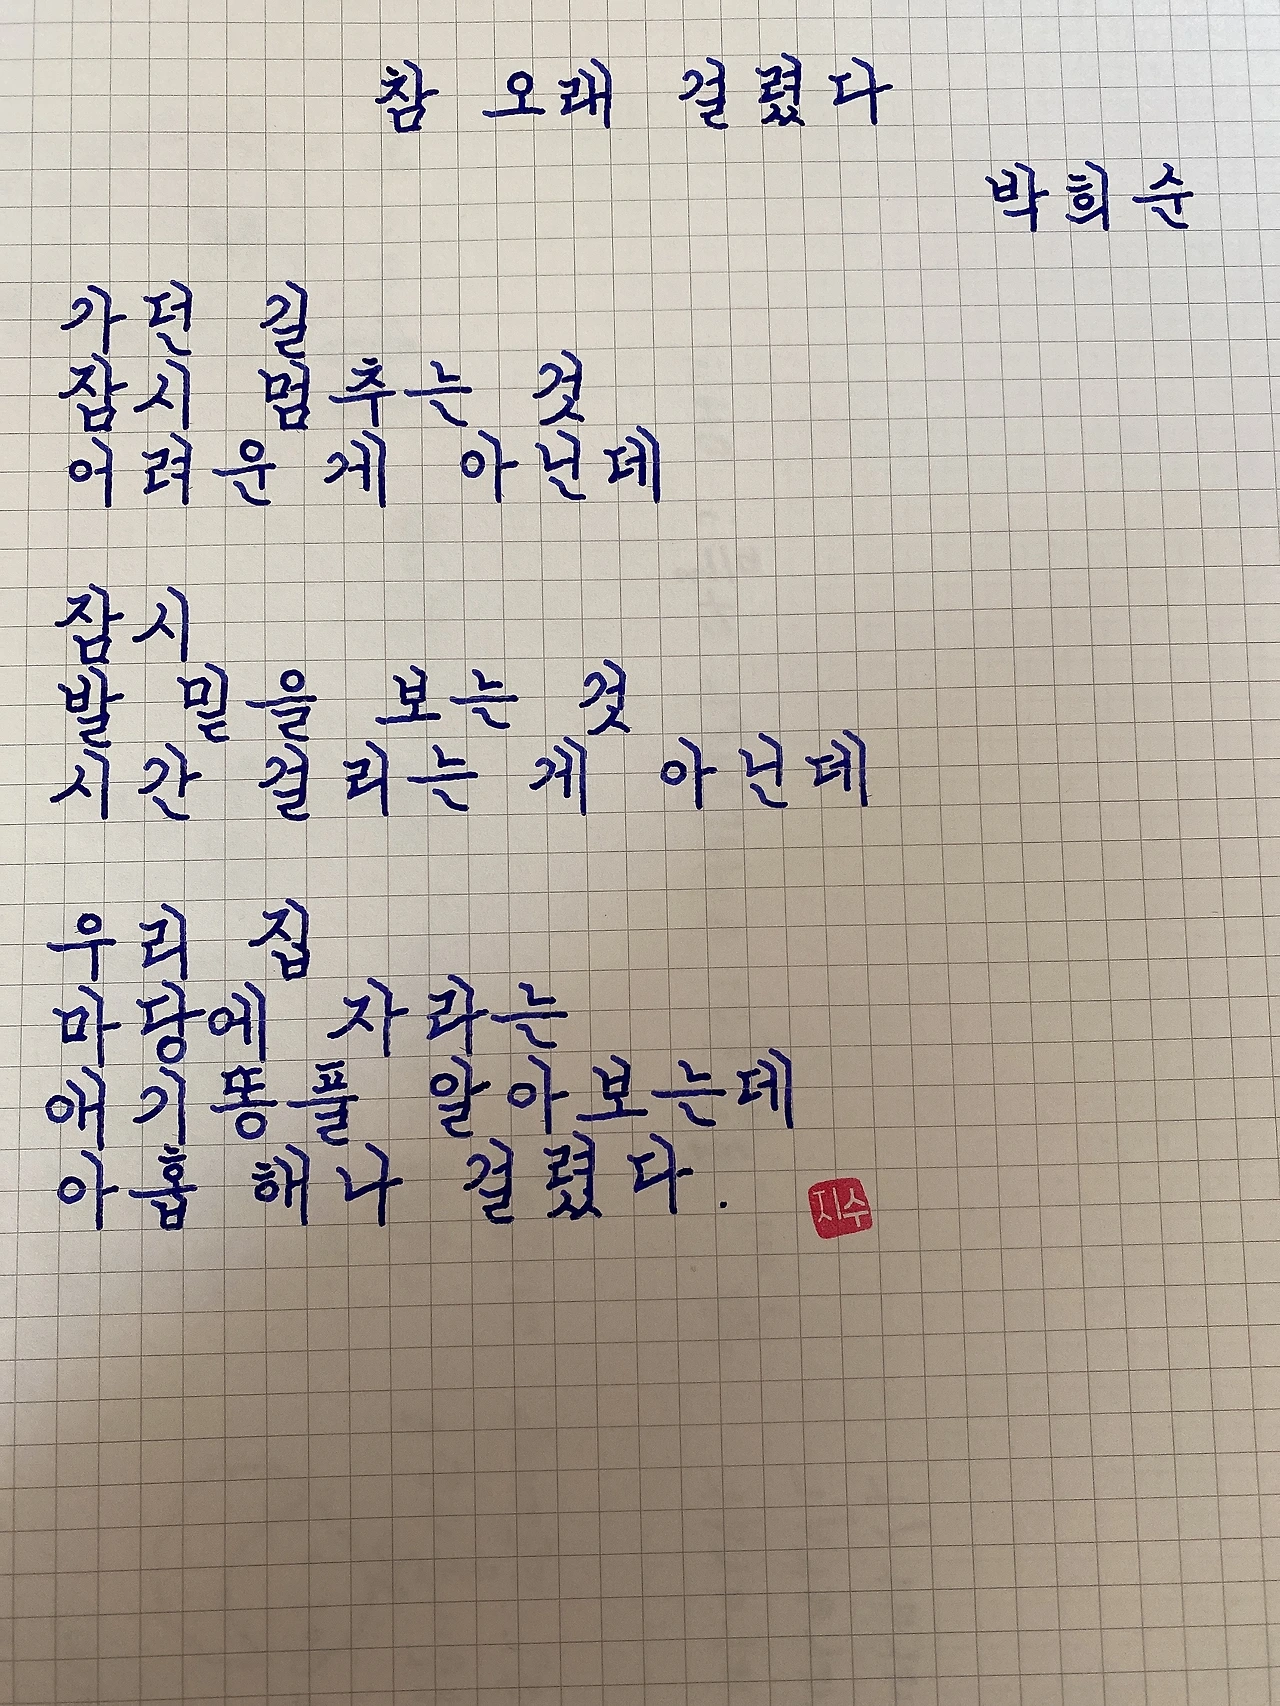 참 오래 걸렸다
박희순
가던 길
잠시 멈추는 것
어려운 게 아닌데
잠시
발 밑을 보는 것
시간 걸리는 게 아닌데
우리 집
마당에 자라는
애기똥풀 알아보는데
아홉 해나 걸렸다.
지수